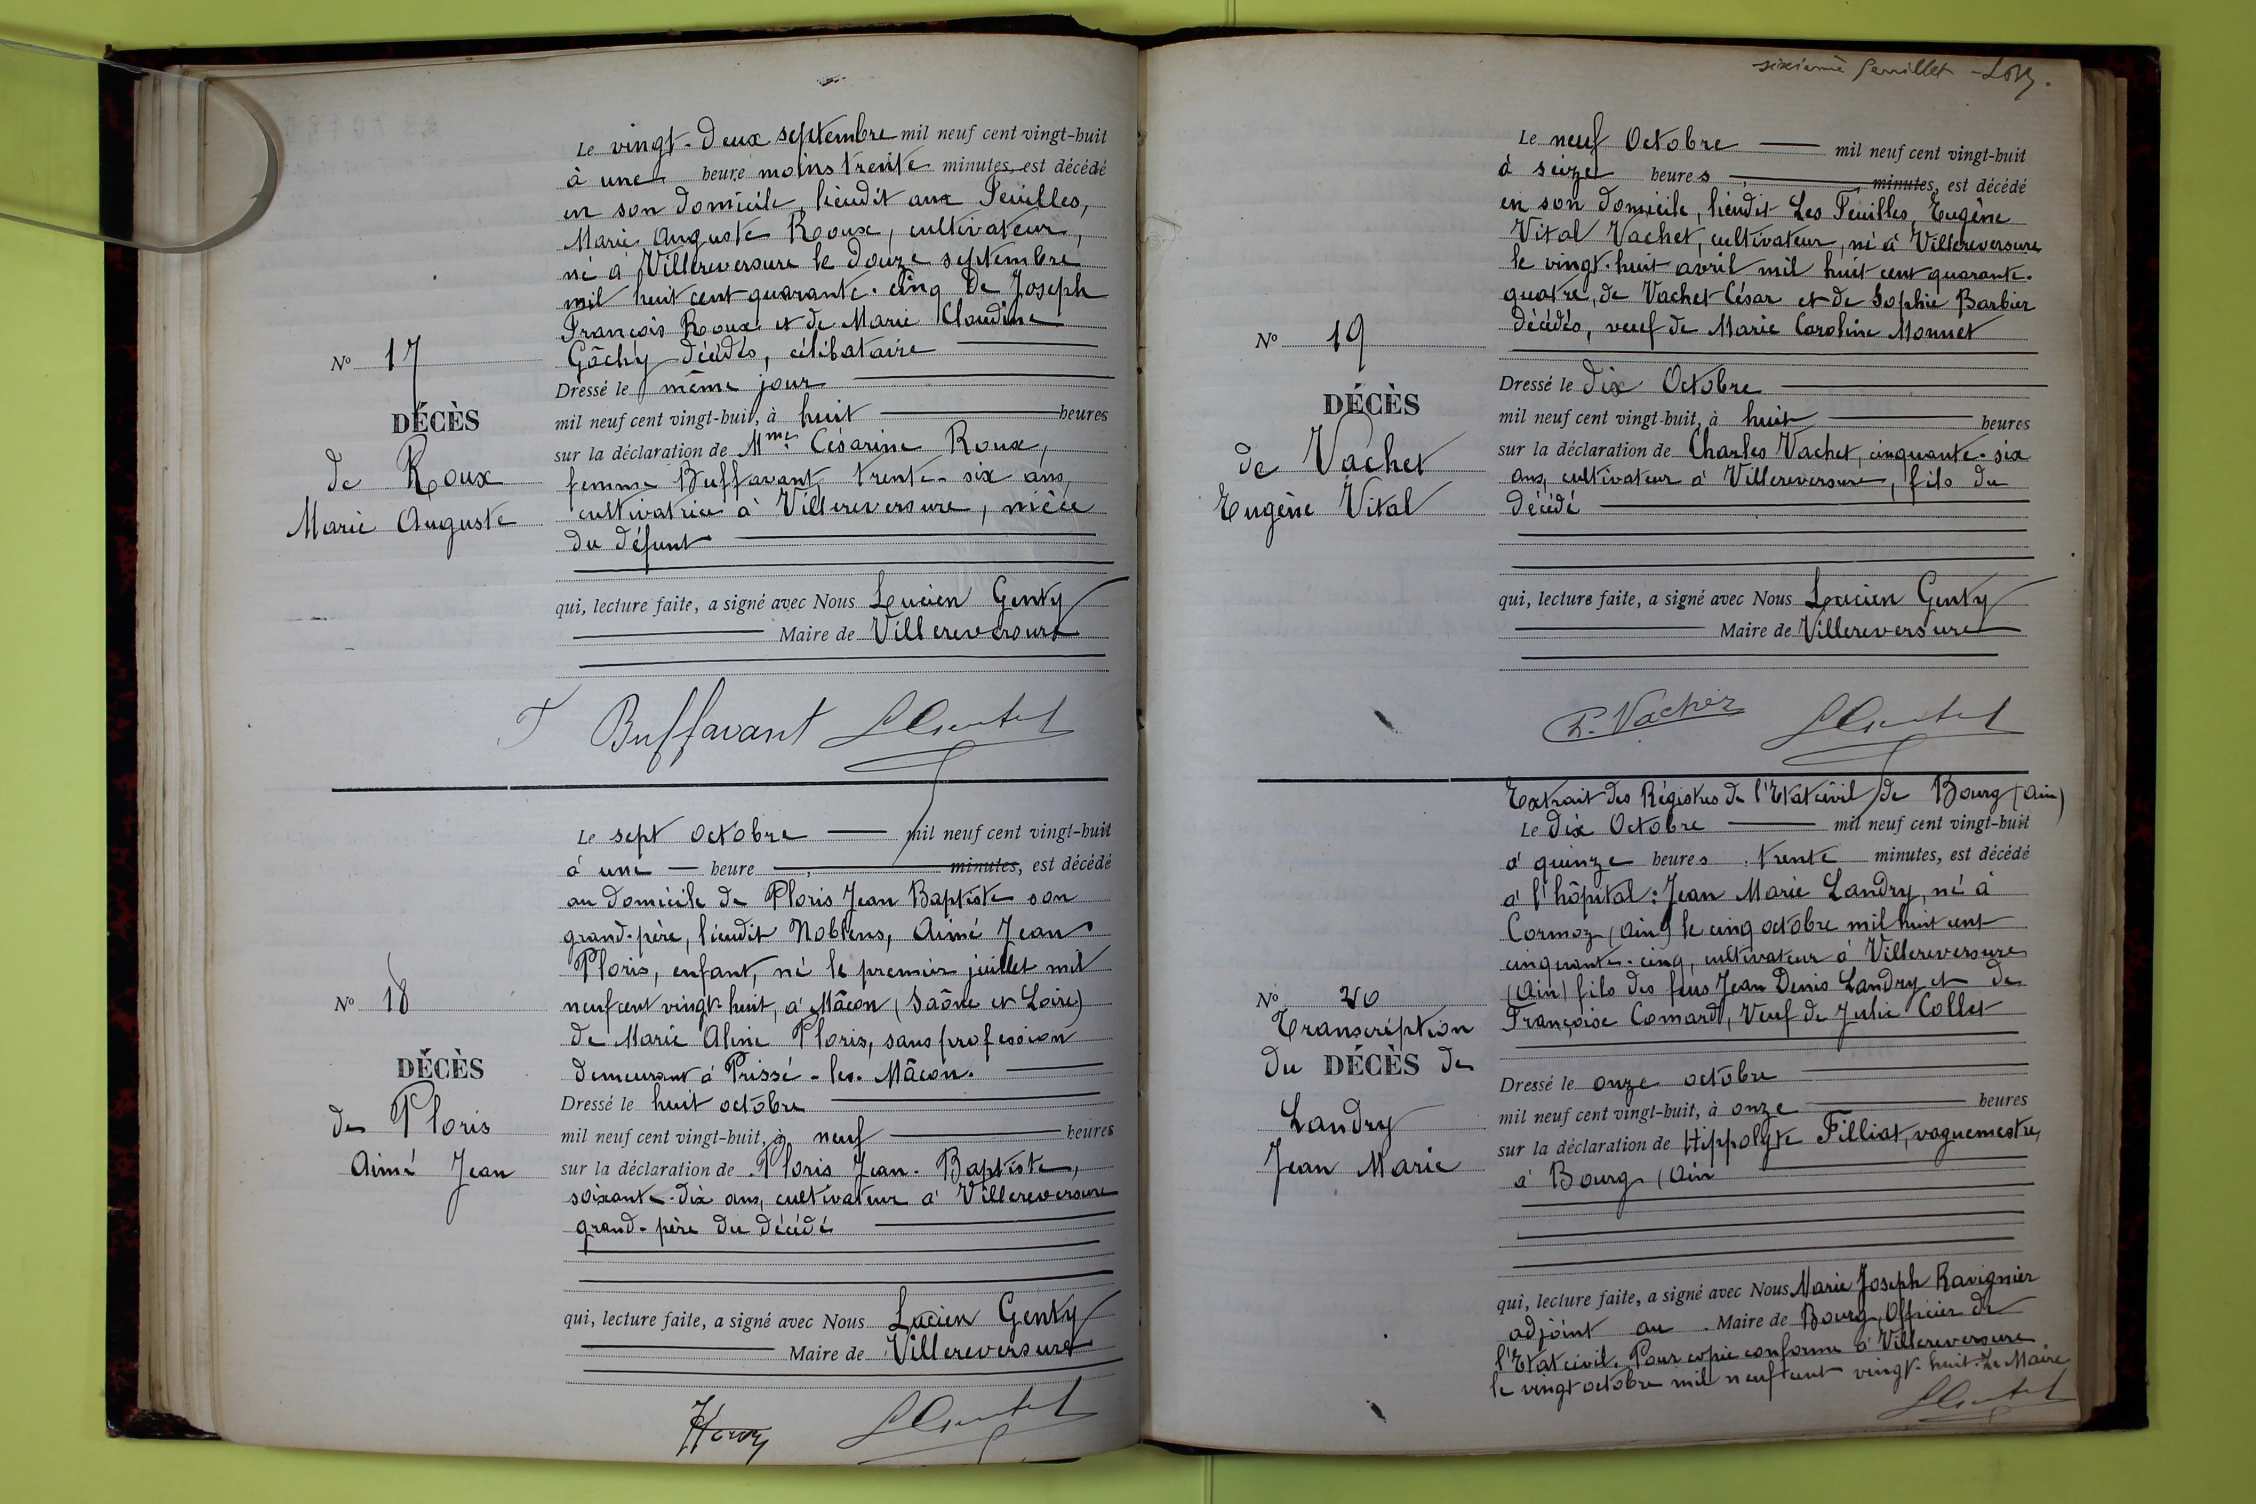 Le vingt-deux septembre mil neuf cent vingt-huit
à une heure moins trente minutes, est décédé
en son domicile, lieudit aux Feuilles,
Marie Auguste Roux, cultivateur,
né à Villereversure le douze septembre
mil huit cent quarante-cinq de Joseph
François Roux et de Marie Claudine
Gâchy décédés, célibataire
Dressé le même jour
mil neuf cent vingt-huit, à huit heures
sur la déclaration de Mme Césarine Roux,
femme Buffavant, trente-six ans,
cultivatrice à Villereversure, nièce
du défunt
qui, lecture faite, a signé avec Nous Lucien Genty
Maire de Villereversure
No 17
DÉCÈS
de Roux
Marie Auguste
Buffavant
Le sept octobre mil neuf cent vingt-huit
à une heure minutes, est décédé
au domicile de Ploris Jean Baptiste son
grand-père, lieudit Noblens, Aimé Jean
Ploris, enfant, né le premier juillet mil
neuf cent vingt-huit, à Mâcon (Saône et Loire)
de Marie Aline Ploris, sans profession
demeurant à Prissé-les-Mâcon.
Dressé le huit octobre
mil neuf cent vingt-huit, à neuf heures
sur la déclaration de Ploris Jean-Baptiste,
soixante-dix ans, cultivateur à Villereversure
grand-père du décédé
qui, lecture faite, a signé avec Nous Lucien Genty
Maire de Villereversure
No 18
DÉCÈS
de Ploris
Aimé Jean
sixième feuillet
Le neuf Octobre mil neuf cent vingt-huit
à seize heures minutes, est décédé
en son domicile, lieudit Les Feuilles, Eugène
Vital Vachet, cultivateur, né à Villereversure
le vingt-huit avril mil huit cent quarante-
quatre, de Vachet César et de Sophie Barbier
décédés, veuf de Marie Caroline Monnet
Dressé le dix Octobre
mil neuf cent vingt-huit, à huit heures
sur la déclaration de Charles Vachet, cinquante-six
ans, cultivateur à Villereversure, fils du
décédé
qui, lecture faite, a signé avec Nous Lucien Genty
Maire de Villereversure
No 19
DÉCÈS
de Vachet
Eugène Vital
Extrait des Régistres de l'Etat civil de Bourg (Ain)
Le dix Octobre mil neuf cent vingt-huit
à quinze heures trente minutes, est décédé
à l'hôpital: Jean Marie Landry, né à
Cormoz (Ain) le cinq octobre mil huit cent
cinquante-cinq, cultivateur à Villereversure
(Ain) fils des feus Jean Denis Landry et de
Françoise Comard, Veuf de Julie Collet
Dressé le onze octobre
mil neuf cent vingt-huit, à onze heures
sur la déclaration de Hippolyte Filliat, vaguemestre,
à Bourg (Ain
qui, lecture faite, a signé avec Nous Marie Joseph Ravignier
adjoint au Maire de Bourg, Officier de
l'Etat civil. Pour copie conforme à Villereversure
le vingt octobre mil neuf cent vingt-huit. Le Maire
No 20
Transcription
du DÉCÈS de
Landry
Jean Marie